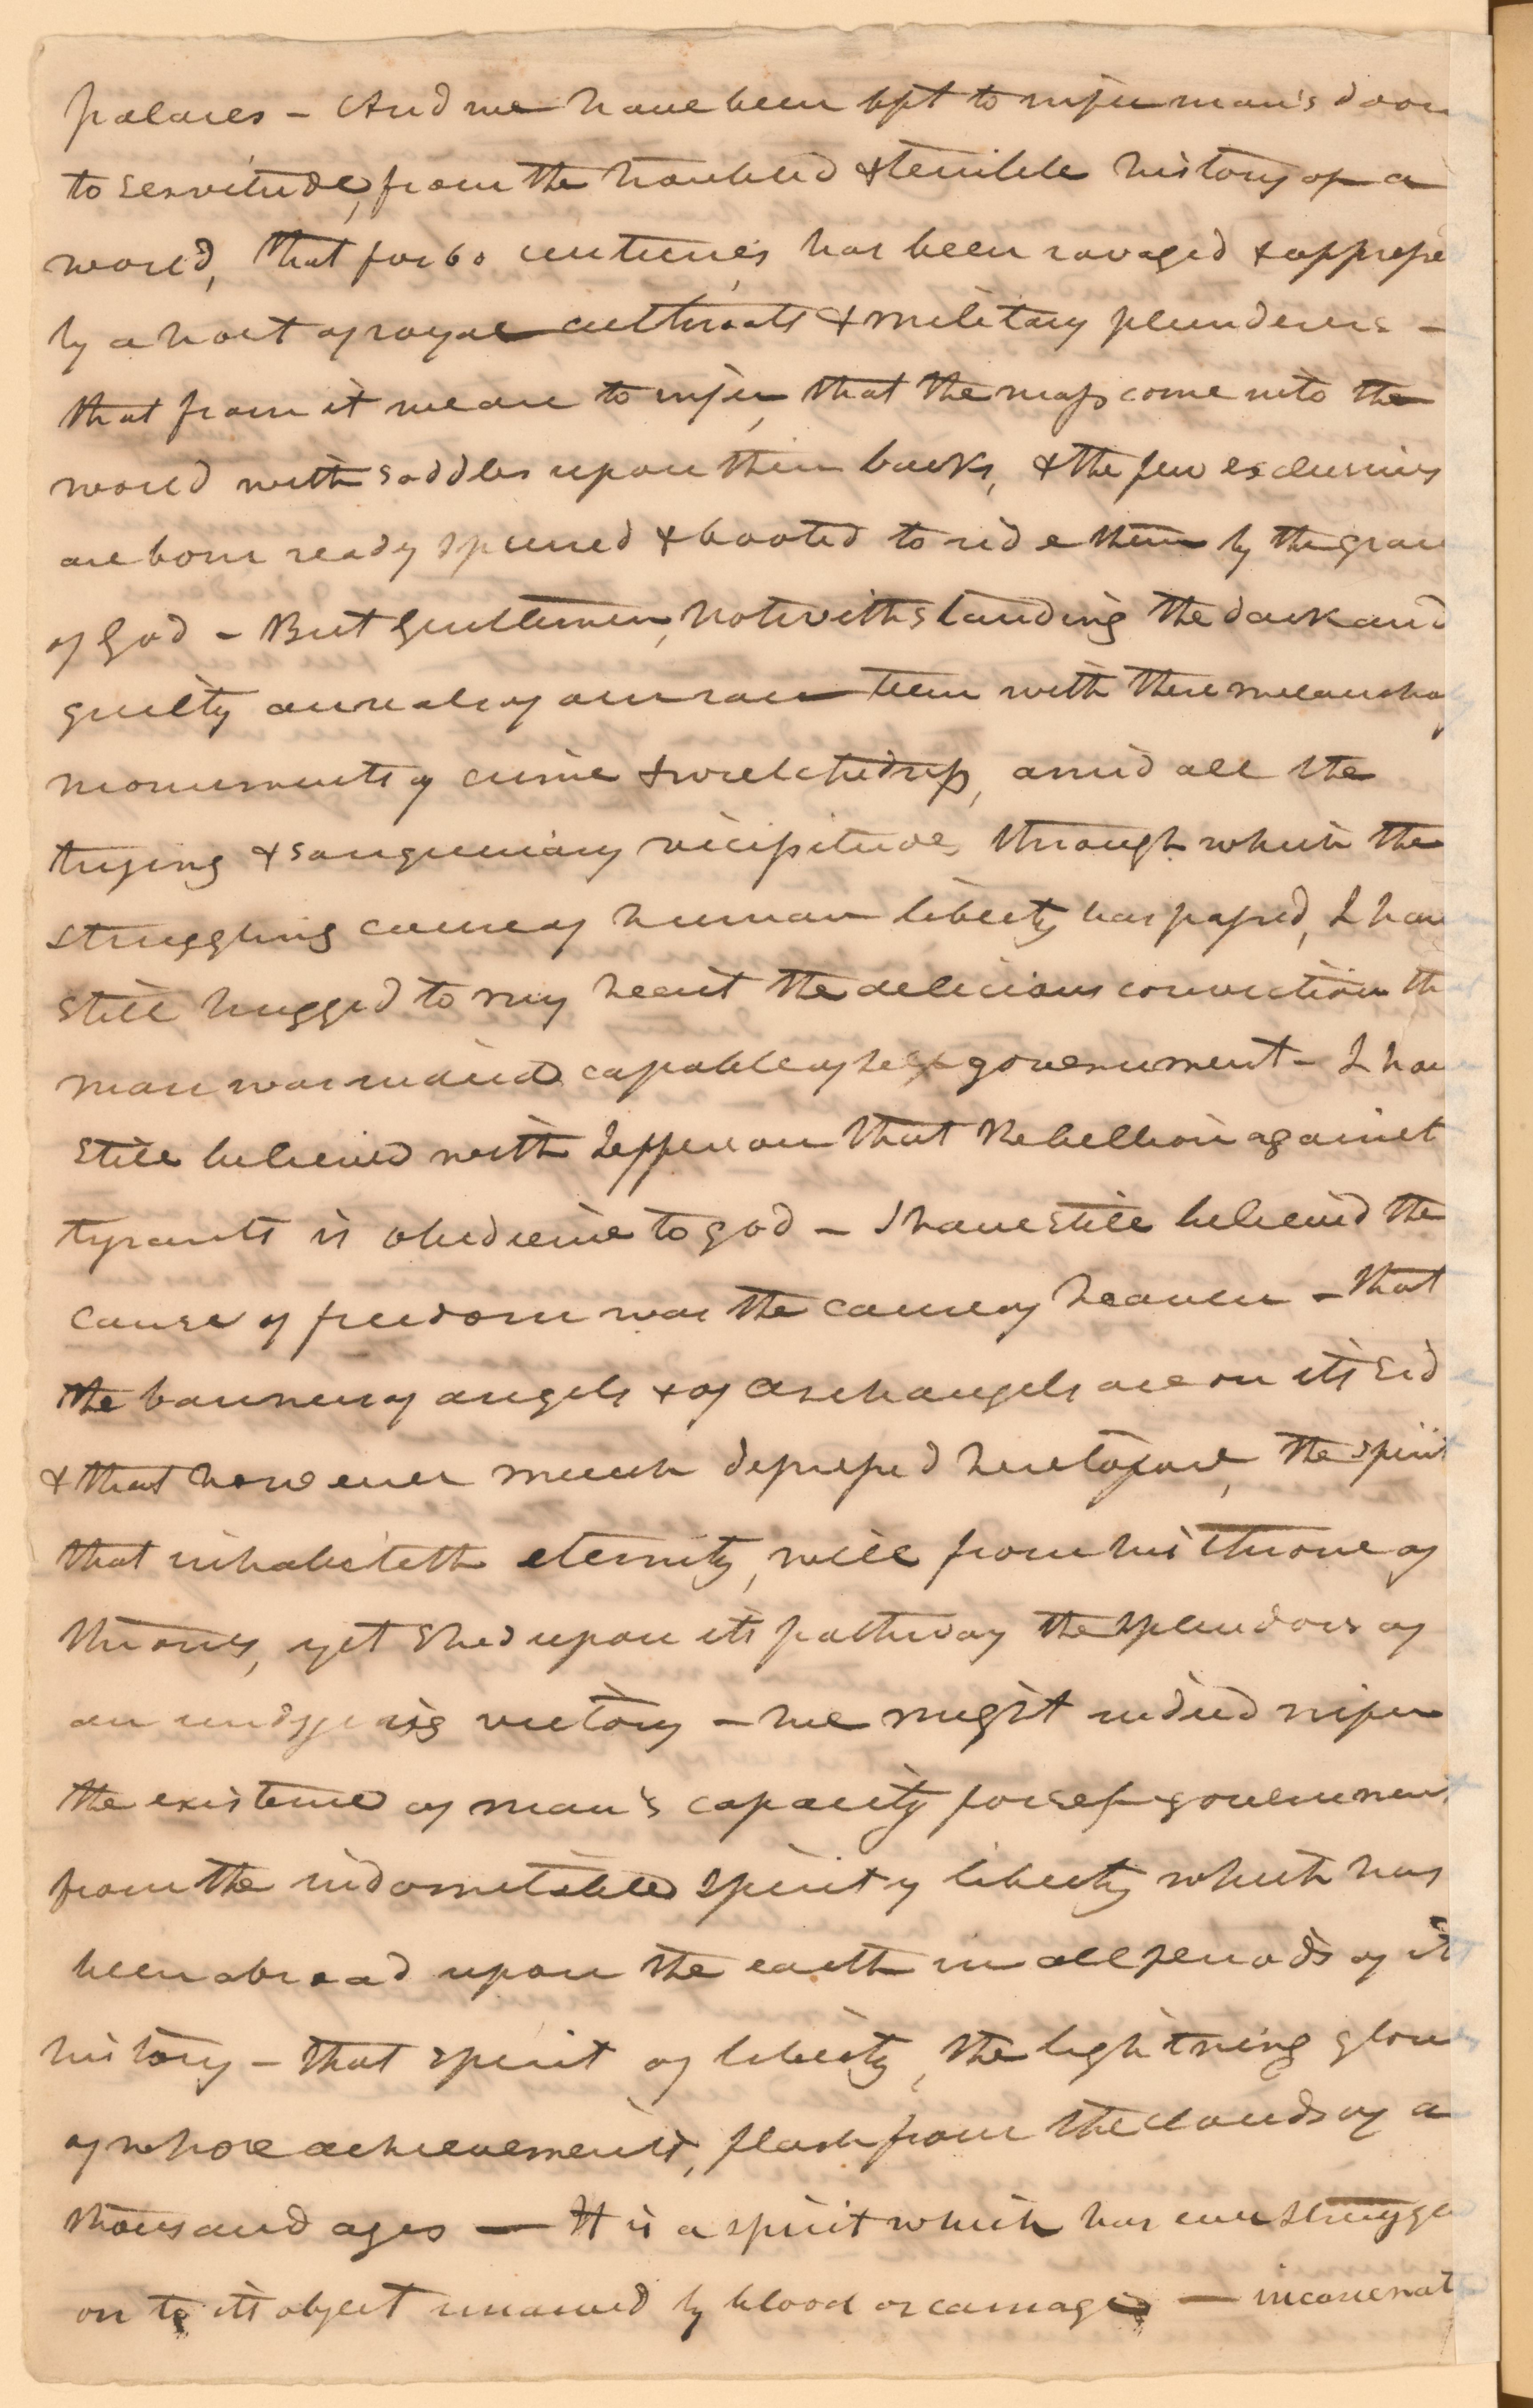 palaces - And we have been left to infer man's doom
to servitude, from the troubled & terrible history of a
world, that for 60 centuries has been ravaged & oppressed
by a host of royal cutthroats & military plunderers -
that from it we are to infer, that the mass come into the
world with saddles upon their backs, & the few exclusives
are born ready spurred & booted to ride them by the grace
of God - But Gentlemen, notwithstanding the dark and
guilty annals of our race teem with these melancholy
monuments of crime & wretchedness, amid all the
trying & sanguinary vicissitudes through which the
struggling cause of human liberty has passed, I have
still hugged to my heart the delicious conviction th
man was made capable of self government - I have
still believed with Jefferson that Rebellion against
tyrants is obedience to god - I have still believed the
cause of freedom was the cause of heaven - that
the banners of angels & of archangels are on its sid
& that however much depressed heretofore, the spirit
that inhabiteth eternity, will from his throne of
thrones, yet shed upon its pathway the splendors of
an undying victory - we might indeed infer
the existence of man's capacity for self government
from the indomitable spirit of liberty which has
been abroad upon the earth in all periods of its
history - that spirit of liberty, the lightning glow
of whose achievements, flash from the clouds of a
thousand ages — It is a spirit which has ever struggle
on to its object unawed by blood or carnage —